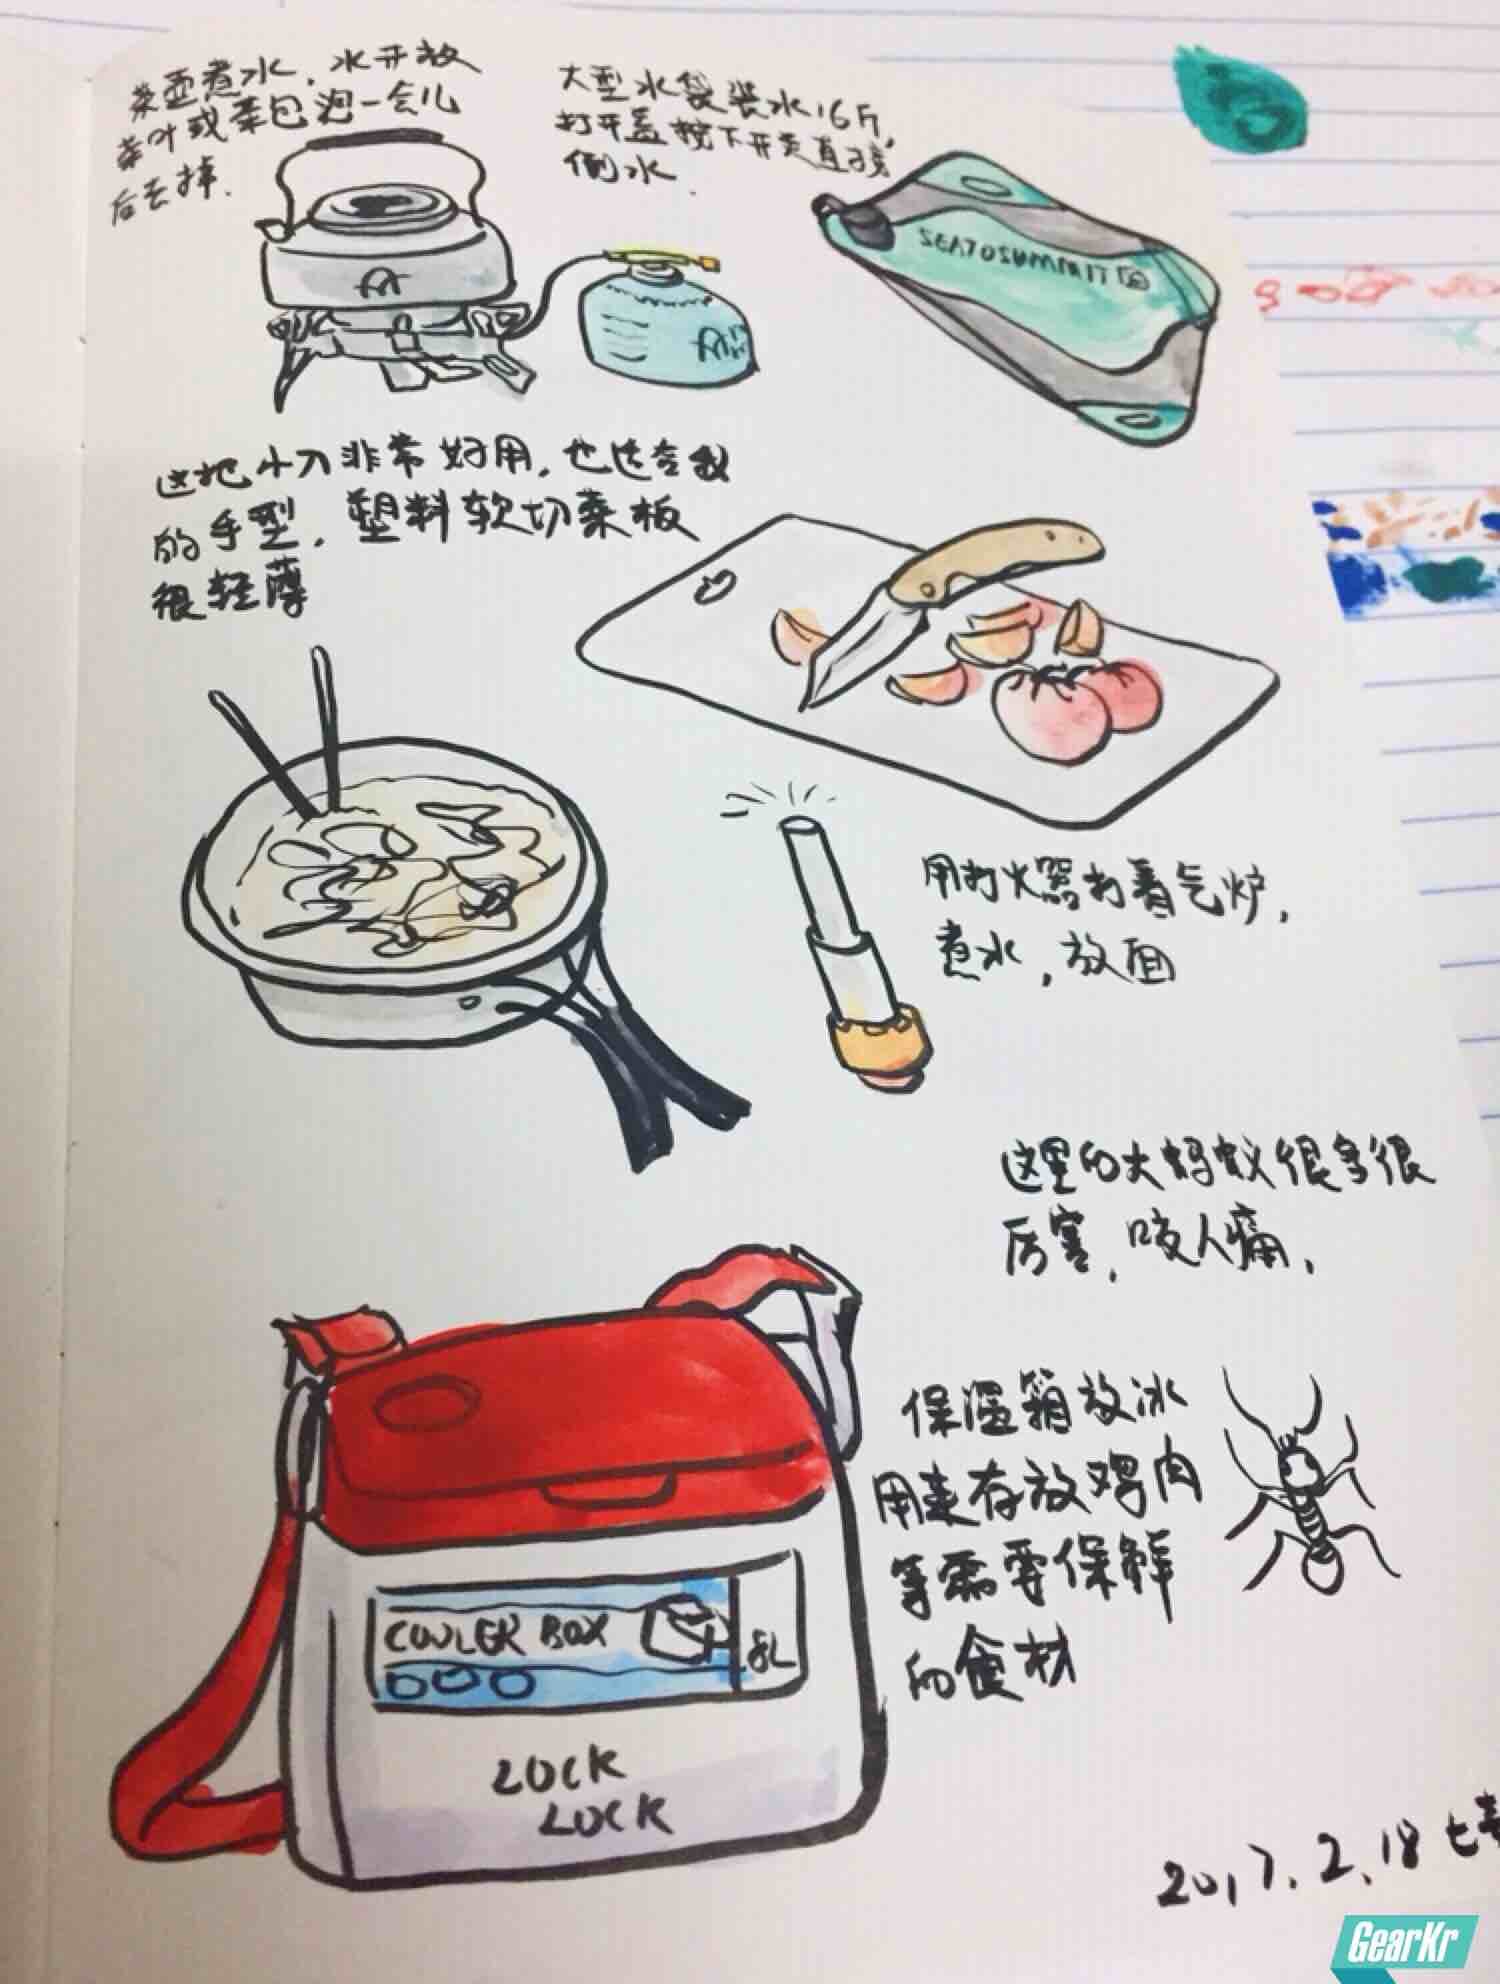 茶壶煮水，水开放
茶叶或茶包泡一会儿
后去掉.
大型水袋装水16斤，
打开盖按下开关直接
倒水.
SEATOSUMMIT
这把小刀非常好用，也适合我
的手型，塑料软切菜板
很轻薄
用打火器打着气炉，
煮水，放面
这里的大蚂蚁很多很
厉害，咬人痛，
保温箱放冰
用来存放鸡肉
等需要保鲜
的食材
COOLER BOX
8L
LOCK
LOCK
2017.2.18
GearKr